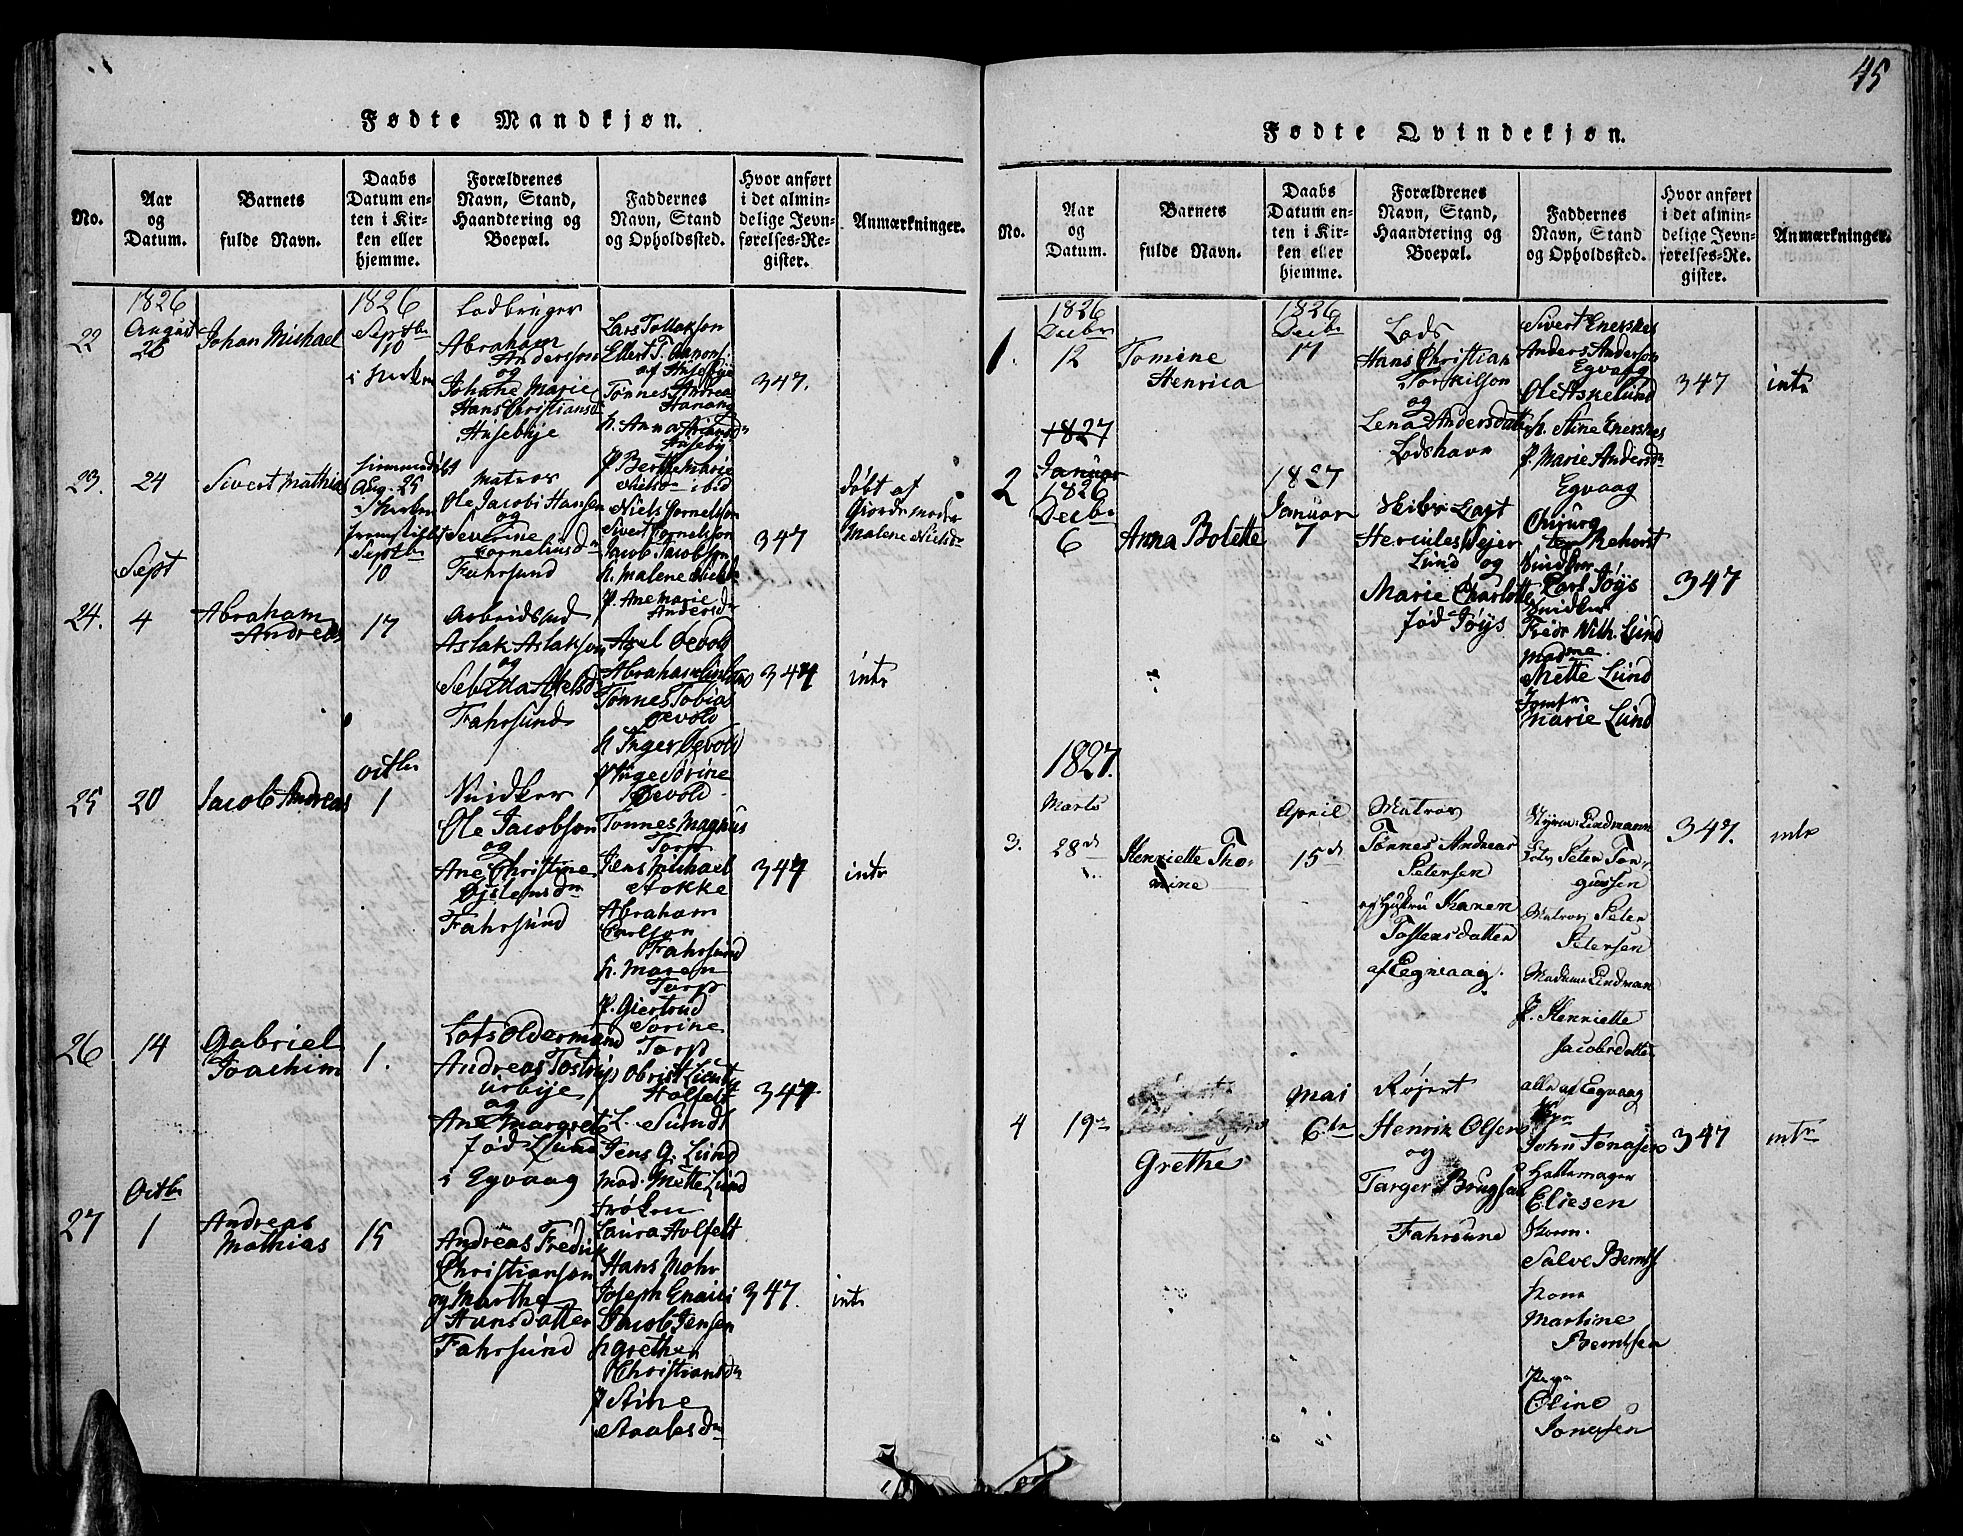 45
Fødte Mandkjøn.
No.
Aar
og
Datum.
Barnets
fulde Navn.
Daabs
Datum en-
ten i Kir-
ken eller
hjemme.
Forældrenes
Navn, Stand,
Haandtering og
Boepæl.
Faddernes
Navn, Stand
og Opholdssted.
Hvor anført
i det almin-
delige Jevn-
førelses-Re-
gister.
Anmærkninger.
22
1826
August
26
Johan Michael
1826
Septbr
10
Abraham
Andersson
og
Johanne Marie
Hans Christiansd
Husebye
Lars Tollakson
af Husebye
Tønnes Andrea
h. Anna
347.
23.
24
Sivert Mathias
Aug. 25
Septbr
10
Matros
Ole Jacobi Hansen
og
Severine
Corneliusdr
Fahrsund
P. Berthe Marie
Nielsdr ibid
Niels Cornelsson
Sivert Cornelsson
Jacob Jacobson
h. Malene Nielsdr
P. Ane Marie
Andersdr
347
døbt af
Giordemoder
Malene Nielsdr
24.
Sept
4
Abraham
Andreas
17
Arbeidsmd
Aslak Aslakson
og
Fahrsund
Axel Øevold
Abraham
Tønnes Tobias
Øevold
h Inger Øevold
P Inge Sørine
Øevold
347
intr
25
20
Jacob Andreas
Octbr
1
Snidker
Ole Jacobson
og
Ane Christine
Fahrsund
Tønnes Magnus
Torp
Jens Michael
Stokke
Abraham
Carlson
Fahrsund
h. Maren
Torp
P. Giertrud
Sørine
Torp
347
intr
26
14
Gabriel
Joachim
1.
Lots Oldermand
Andreas Tostrup
Urbye
og
Ane Margrete
fød Lund
i Egvaag
Holfelt
L. Sundt
Jens G. Lund
Mad. Mette Lund
Frøken
Laura Holfelt
347
27
Octbr
1
Andreas
Mathias
15
Andreas Fredrik
Christianson
og Marthe
Hansdatter
Fahrsund
Hans Mohr
Joseph
Jacob Jensen
h Grethe
Christiansdr
P Stine
347.
intr
Fødte Qvindekjøn.
No.
Aar
og
Datum.
Barnets
fulde Navn.
Daabs
Datum en-
ten i Kir-
ken eller
hjemme.
Forældrenes
Navn, Stand,
Haandtering og
Boepæl.
Faddernes
Navn, Stand
og Opholdssted.
Hvor anført
i det almin-
delige Jevn-
førelses-Re-
gister.
Anmærkninger.
1.
1826
Decbr
12
Tomine
Henrica
1826
Decbr
17
Lods
Hans Christian
Torkilson
og
Lena Andersdatter
Lodshavn
Sivert Enersnes
Anders Anderson
Egvaag
Ole Askelund
h. Stine Enersnes
P. Marie Andersdr
Egvaag
347
intr
2
1827
Januar
1826
Decbr
6
Anna Bolette
1827
Januar
7
Hercules Vejer
Lund og
Marie Charlotte
fød Tøys
Chirurg
Rehorst
Snidker
Carl Tøys
Snidker
Fredr Wilh. Lund
Madme
Mette Lund
Jomfr
Marie Lund
347
1827.
3.
Marts
28de
Henriette Tho-
mine
April
15d
Matros
Tønnes Andreas
Petersen
og Hustru Karen
Tostensdatter
af Egvaag.
Styrm: Lindmann
Lods Peter Tor-
gussen
Matros Peter
Petersen
Madam Lindman
P. Henriette
Jacobsdatter
alle af Egvaag
347.
intr
4
19de
Grethe
Mai
6te
Henrik Olsen
og
Fahrsund
John Jonasen
Hattemager
Eliesen
Salve Berntsen
Kone
Martine
Berntsen
Piga
Oline
Jonasen
347
intr